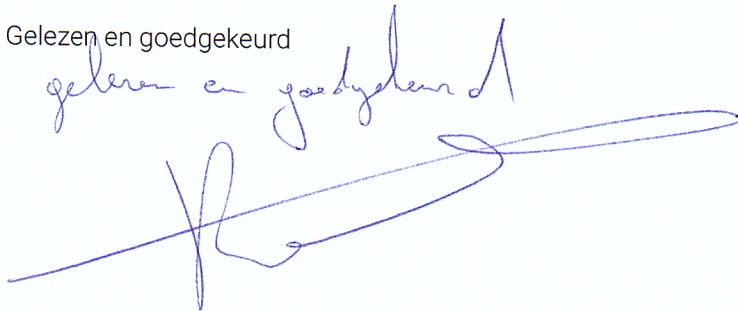 Gelezen en goedgekeurd
gelezen en goedgekeurd